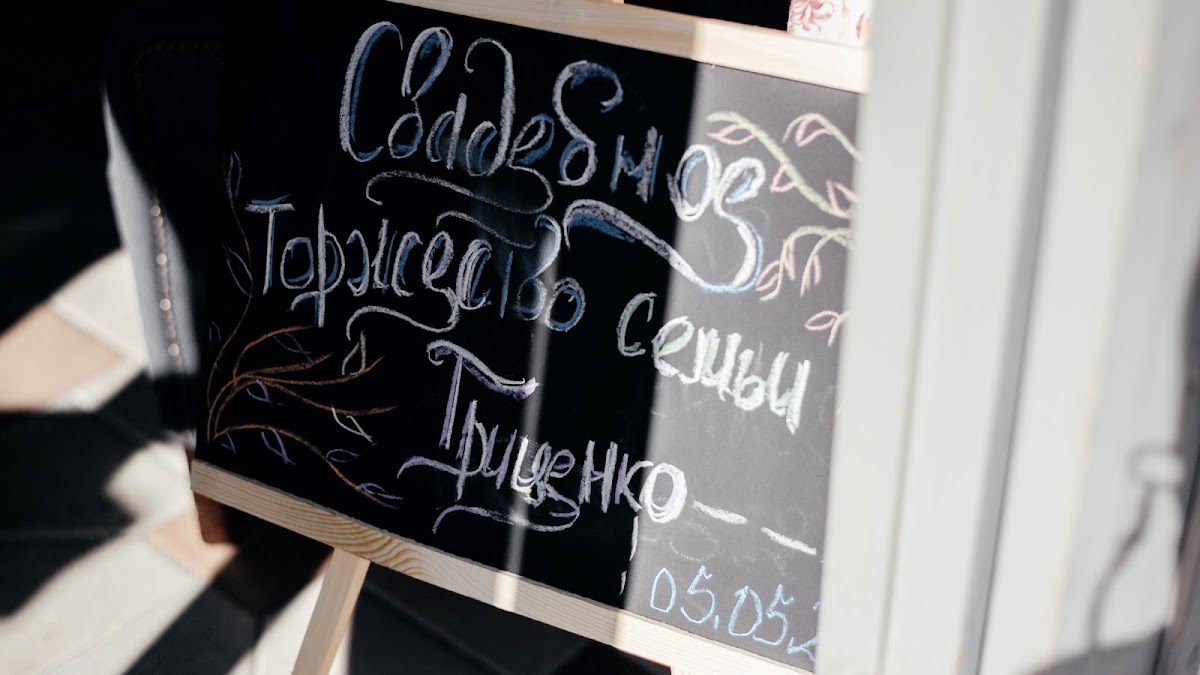 Свадебное
Торжество семьи
Гриценко
05.05.2